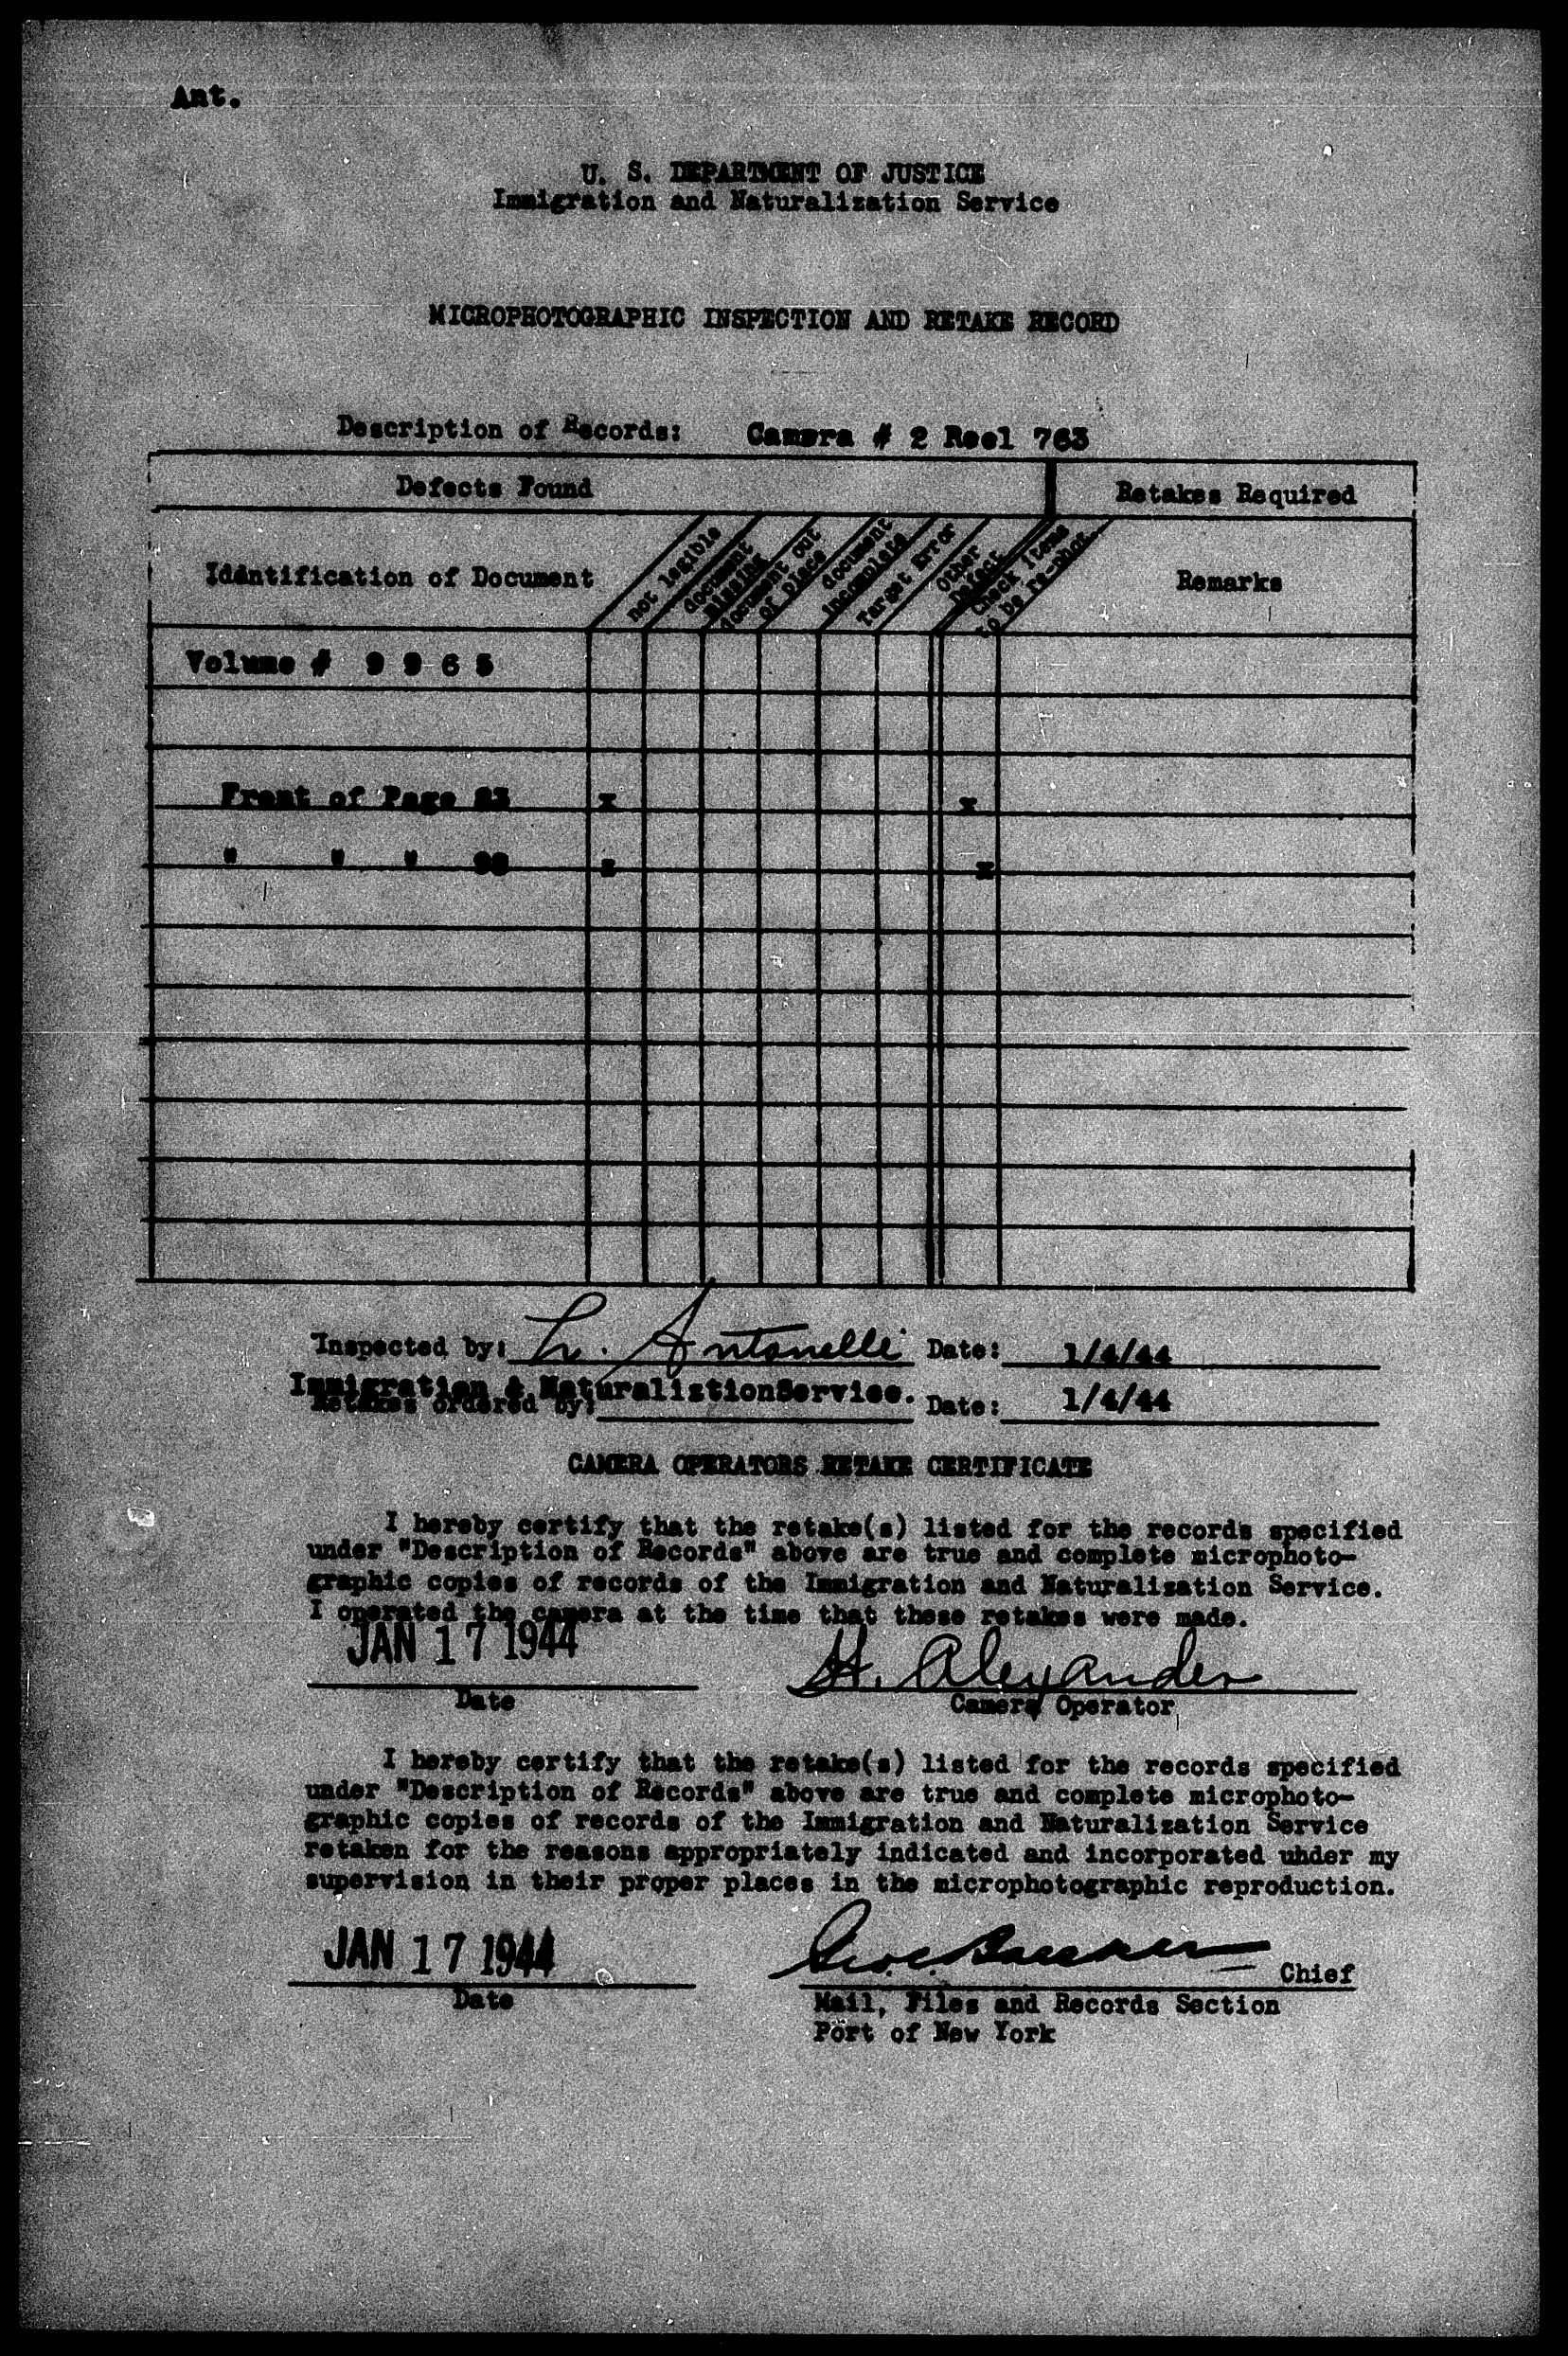 Ant.
U. S. DEPARTMENT OF JUSTICE
Immigration and Naturalization Service
MICROPHOTOGRAPHIC INSPECTION AND RETAKE RECORD
Description of Records: Camera # 2 Reel 763
Defects Found
Retakes Required
Idántification of Document
not legible
document missing
document out of place
document incomplete
Target Error
Other Defect
Check items to be re-phox
Remarks
Volume # 9 9 6 5
Front of Page x x
" " " x x
Inspected by: Antonelli Date: 1/4/44
Immigration & NaturalistionService.
Retakes ordered by: Date: 1/4/44
CAMERA OPERATORS RETAKE CERTIFICATE
I hereby certify that the retake(s) listed for the records specified
under "Description of Records" above are true and complete microphoto-
graphic copies of records of the Immigration and Naturalization Service.
I operated the camera at the time that these retakes were made.
JAN 17 1944 H. Alexander
Date Camera Operator
I hereby certify that the retake(s) listed for the records specified
under "Description of Records" above are true and complete microphoto-
graphic copies of records of the Immigration and Naturalization Service
retaken for the reasons appropriately indicated and incorporated uhder my
supervision in their proper places in the microphotographic reproduction.
JAN 17 1944 Chief
Date Mail, Files and Records Section
Port of New York